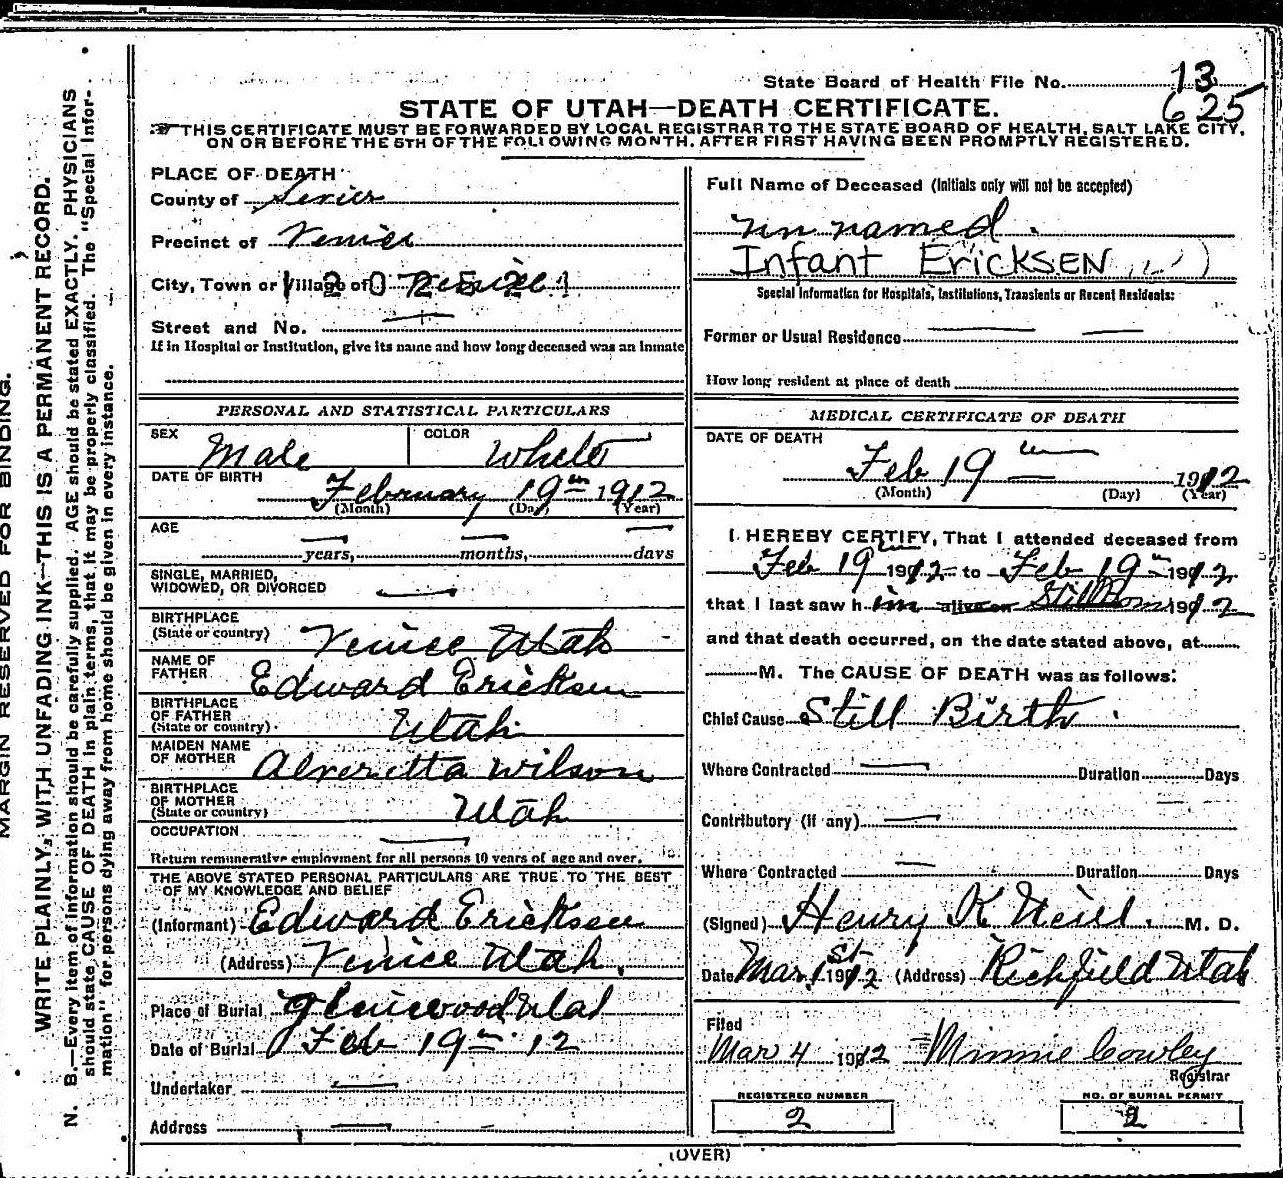 State Board of Health File No. 13
625
STATE OF UTAH—DEATH CERTIFICATE.
THIS CERTIFICATE MUST BE FORWARDED BY LOCAL REGISTRAR TO THE STATE BOARD OF HEALTH, SALT LAKE CITY,
ON OR BEFORE THE 5TH OF THE FOLLOWING MONTH, AFTER FIRST HAVING BEEN PROMPTLY REGISTERED.
MARGIN RESERVED FOR BINDING.
WRITE PLAINLY, WITH UNFADING INK—THIS IS A PERMANENT RECORD.
N. B.—Every item of information should be carefully supplied. AGE should be stated EXACTLY. PHYSICIANS
should state CAUSE OF DEATH in plain terms, that it may be properly classified. The "Special Infor-
mation" for persons dying away from home should be given in every instance.
PLACE OF DEATH
County of Sevier
Precinct of Venice
City, Town or Village of Venice
Street and No.
If in Hospital or Institution, give its name and how long deceased was an inmate
PERSONAL AND STATISTICAL PARTICULARS
SEX Male COLOR White
DATE OF BIRTH
February 19th 1912
(Month) (Day) (Year)
AGE
years, months, days
SINGLE, MARRIED,
WIDOWED, OR DIVORCED
BIRTHPLACE
(State or country) Venice Utah
NAME OF
FATHER Edward Ericksen
BIRTHPLACE
OF FATHER
(State or country) Utah
MAIDEN NAME
OF MOTHER Alveretta Wilson
BIRTHPLACE
OF MOTHER
(State or country) Utah
OCCUPATION
Return remunerative employment for all persons 10 years of age and over.
THE ABOVE STATED PERSONAL PARTICULARS ARE TRUE TO THE BEST
OF MY KNOWLEDGE AND BELIEF
(Informant) Edward Ericksen
(Address) Venice Utah.
Place of Burial Glenwood Utah
Date of Burial Feb 19th 12
Undertaker
Address
Full Name of Deceased (Initials only will not be accepted)
un named.
Infant ERICKSEN
Special Information for Hospitals, Institutions, Transients or Recent Residents:
Former or Usual Residence
How long resident at place of death
MEDICAL CERTIFICATE OF DEATH
DATE OF DEATH
Feb 19th 1912
(Month) (Day) (Year)
I HEREBY CERTIFY, That I attended deceased from
Feb 19th 1912 to Feb 19th 1912
that I last saw him alive on Still Born 1912
and that death occurred, on the date stated above, at
M. The CAUSE OF DEATH was as follows:
Chief Cause Still Birth.
Where Contracted Duration Days
Contributory (if any)
Where Contracted Duration Days
(Signed) Henry K Neill. M. D.
Date Mar. 1st 1912 (Address) Richfield Utah
Filed
Mar 4 1912 Minnie Cowley
Registrar
REGISTERED NUMBER
2
NO. OF BURIAL PERMIT
2
(OVER)